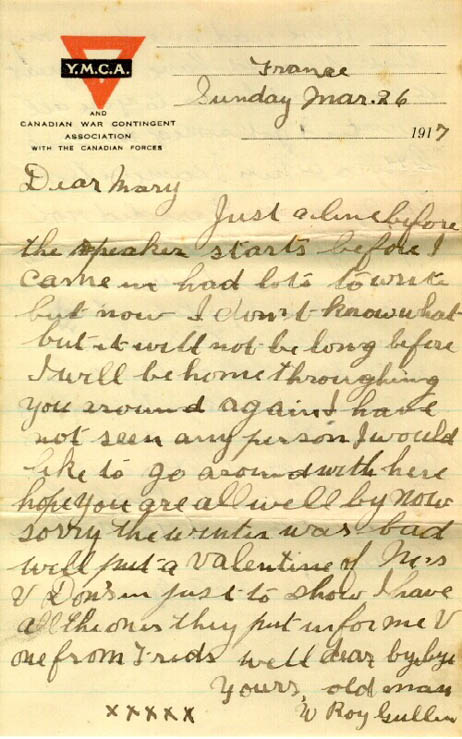 Y.M.C.A.
AND
CANADIAN WAR CONTINGENT
ASSOCIATION
WITH THE CANADIAN FORCES
France
Sunday Mar. 26
1917
Dear Mary
Just a line before
the speaker starts before I
came in had lots to write
but now I don't know what
but it will not be long before
I will be home throughing
you around again I have
not seen any person I would
like to go around with here
hope you are all well by now
sorry the winter was bad
well put a valentine of Mrs
V Don's in just to show I have
all the ones they put in for me V
one from Freds well dear by bye
Yours, old man
xxxxx W Roy Gullen